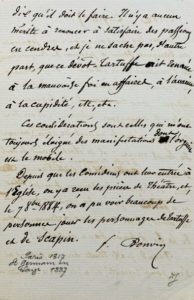 dit qu'il doit le faire. Il n'y a aucun
mérite à renoncer à satisfaire des passions
en cendres, et je ne sache pas, d'autre
part, que ce dévot Tartuffe ait renoncé
à la mauvaise foi en affaires, à l'
à la cupidité, etc, etc.
Ces considérations sont celles qui m'ont
toujours éloigné des manifestations dont l'orgueil
est le mobile
Depuis que les Comédiens ont leur entrée à
l'Eglise, on y a cem les pièces de Théâtre, et,
le 7 8bre 1884, on a pu voir beaucoup de
personnes jouer les personnages de Tartuffe
et de Scapin.
f. Bonvin
Paris 1817
St Germain en
Laye 1887